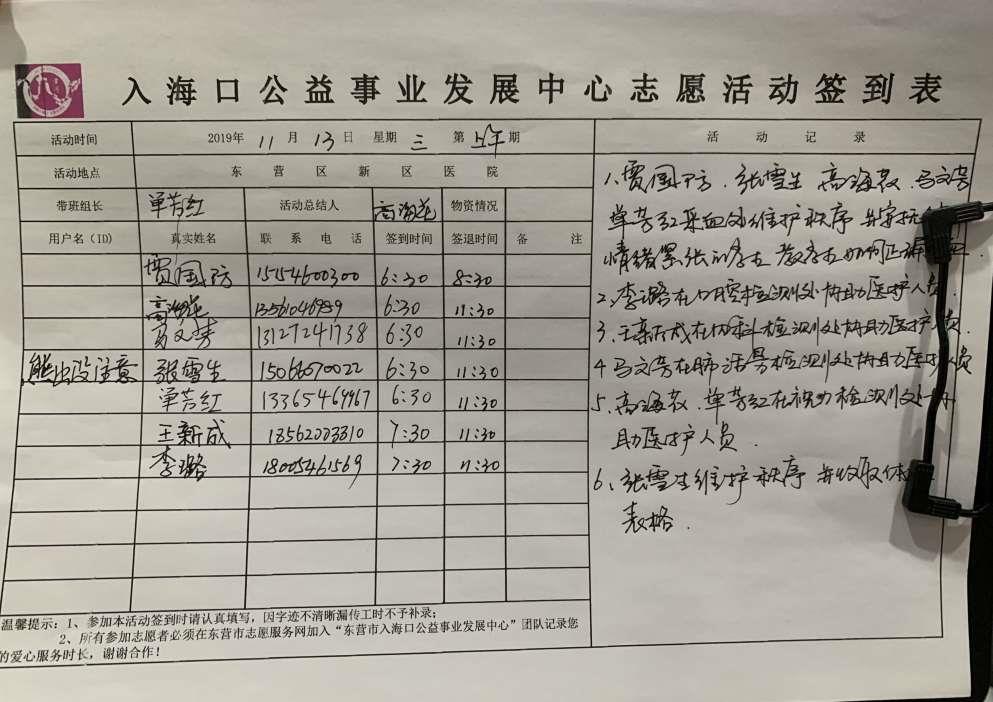 入海口公益事业发展中心志愿活动签到表
活动时间 2019年 11 月 13 日 星期 三 第 上午 期
活动地点 东营区新区医院
带班组长 单芳红 活动总结人 高海花 物资情况
用户名（ID） 真实姓名 联系电话 签到时间 签退时间 备注
贾国防 15154600300 6:30 8:30
高海花 13561046989 6:30 11:30
13127241738 6:30 11:30
熊出没注意 张雪生 15066670022 6:30 11:30
单芳红 13365469967 6:30 11:30
王新成 18562003310 7:30 11:30
李璐 18005461569 7:30 11:30
温馨提示：1、参加本活动签到时请认真填写，因字迹不清晰漏传工时不予补录；
2、所有参加志愿者必须在东营市志愿服务网加入“东营市入海口公益事业发展中心”团队记录您
的爱心服务时长，谢谢合作！
活动记录
1、贾国防、张雪生 高海花、马文芳
单芳红采血处维护秩序 并安抚
情绪紧张的学生 教学生如何正确
2、李璐在口腔检测处协助医护人员.
3、王新成在内科检测处协助医护人员.
4、马文芳在肺活量检测处协助医护人员
5、高海花、单芳红在视力检测处
助医护人员.
6、张雪生维护秩序 并收取体
表格.